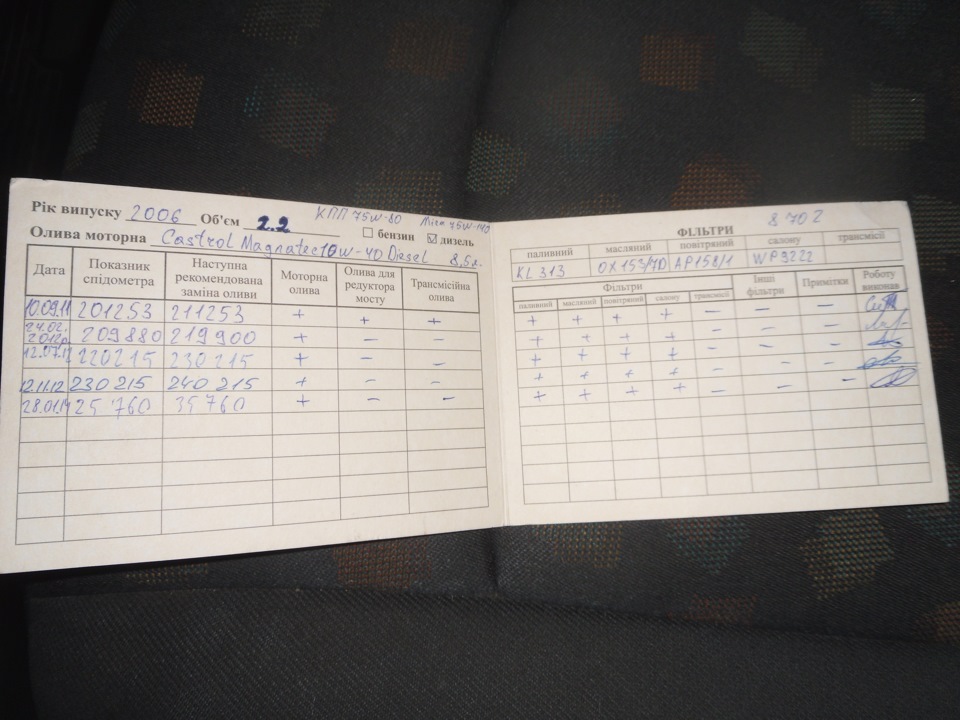 Рік випуску 2006 Об'єм 2.2 КПП 75W-80 Міст 75W-140
☐ бензин ☑ дизель
Олива моторна Castrol Magnatec 10W-40 Diesel 8,5л.
Дата Показник спідометра Наступна рекомендована заміна оливи Моторна олива Олива для редуктора мосту Трансмісійна олива
10.09.11 201253 211253 + + +
24.02.2012р 209880 219900 + – –
12.07.12 220215 230215 + – –
12.11.12 230215 240215 + – –
28.01.14 25 760 35 760 + – –
8702
ФІЛЬТРИ
паливний масляний повітряний салону трансмісії
KL 313 OX 153/7D AP158/1 WP9222
Фільтри Інші фільтри Примітки Роботу виконав
паливний масляний повітряний салону трансмісії
+ + + + – – –
+ + + + – – –
+ + + + – – –
+ + + + – – –
+ + + + – – –